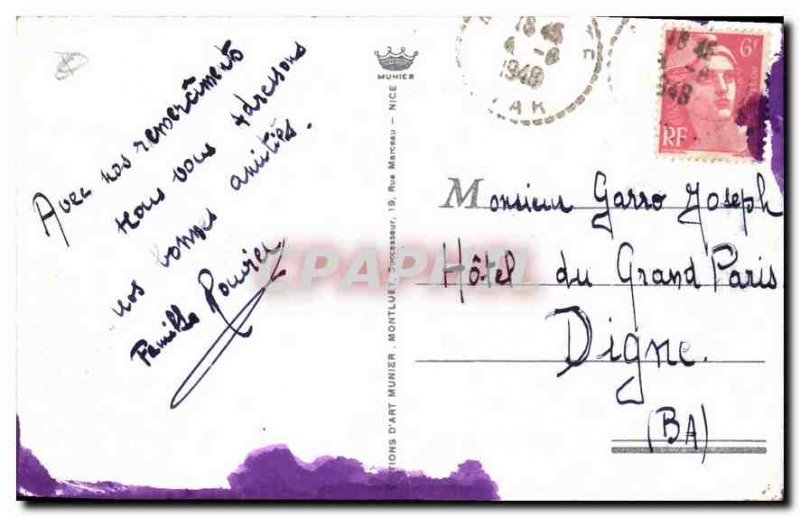 Avec nos remerciments
nous vous adressons
nos bonnes amitiés.
Famille
MUNIER
EDITIONS D'ART MUNIER, MONTLUET, Successeur, 19, Rue Marceau - NICE
18 45
4 - 8
1948
VAR
18 45
- 8
1948
6f
RF
Monsieur Garro Joseph
Hôtel du Grand Paris
Digne.
(BA)
CPAPHIL